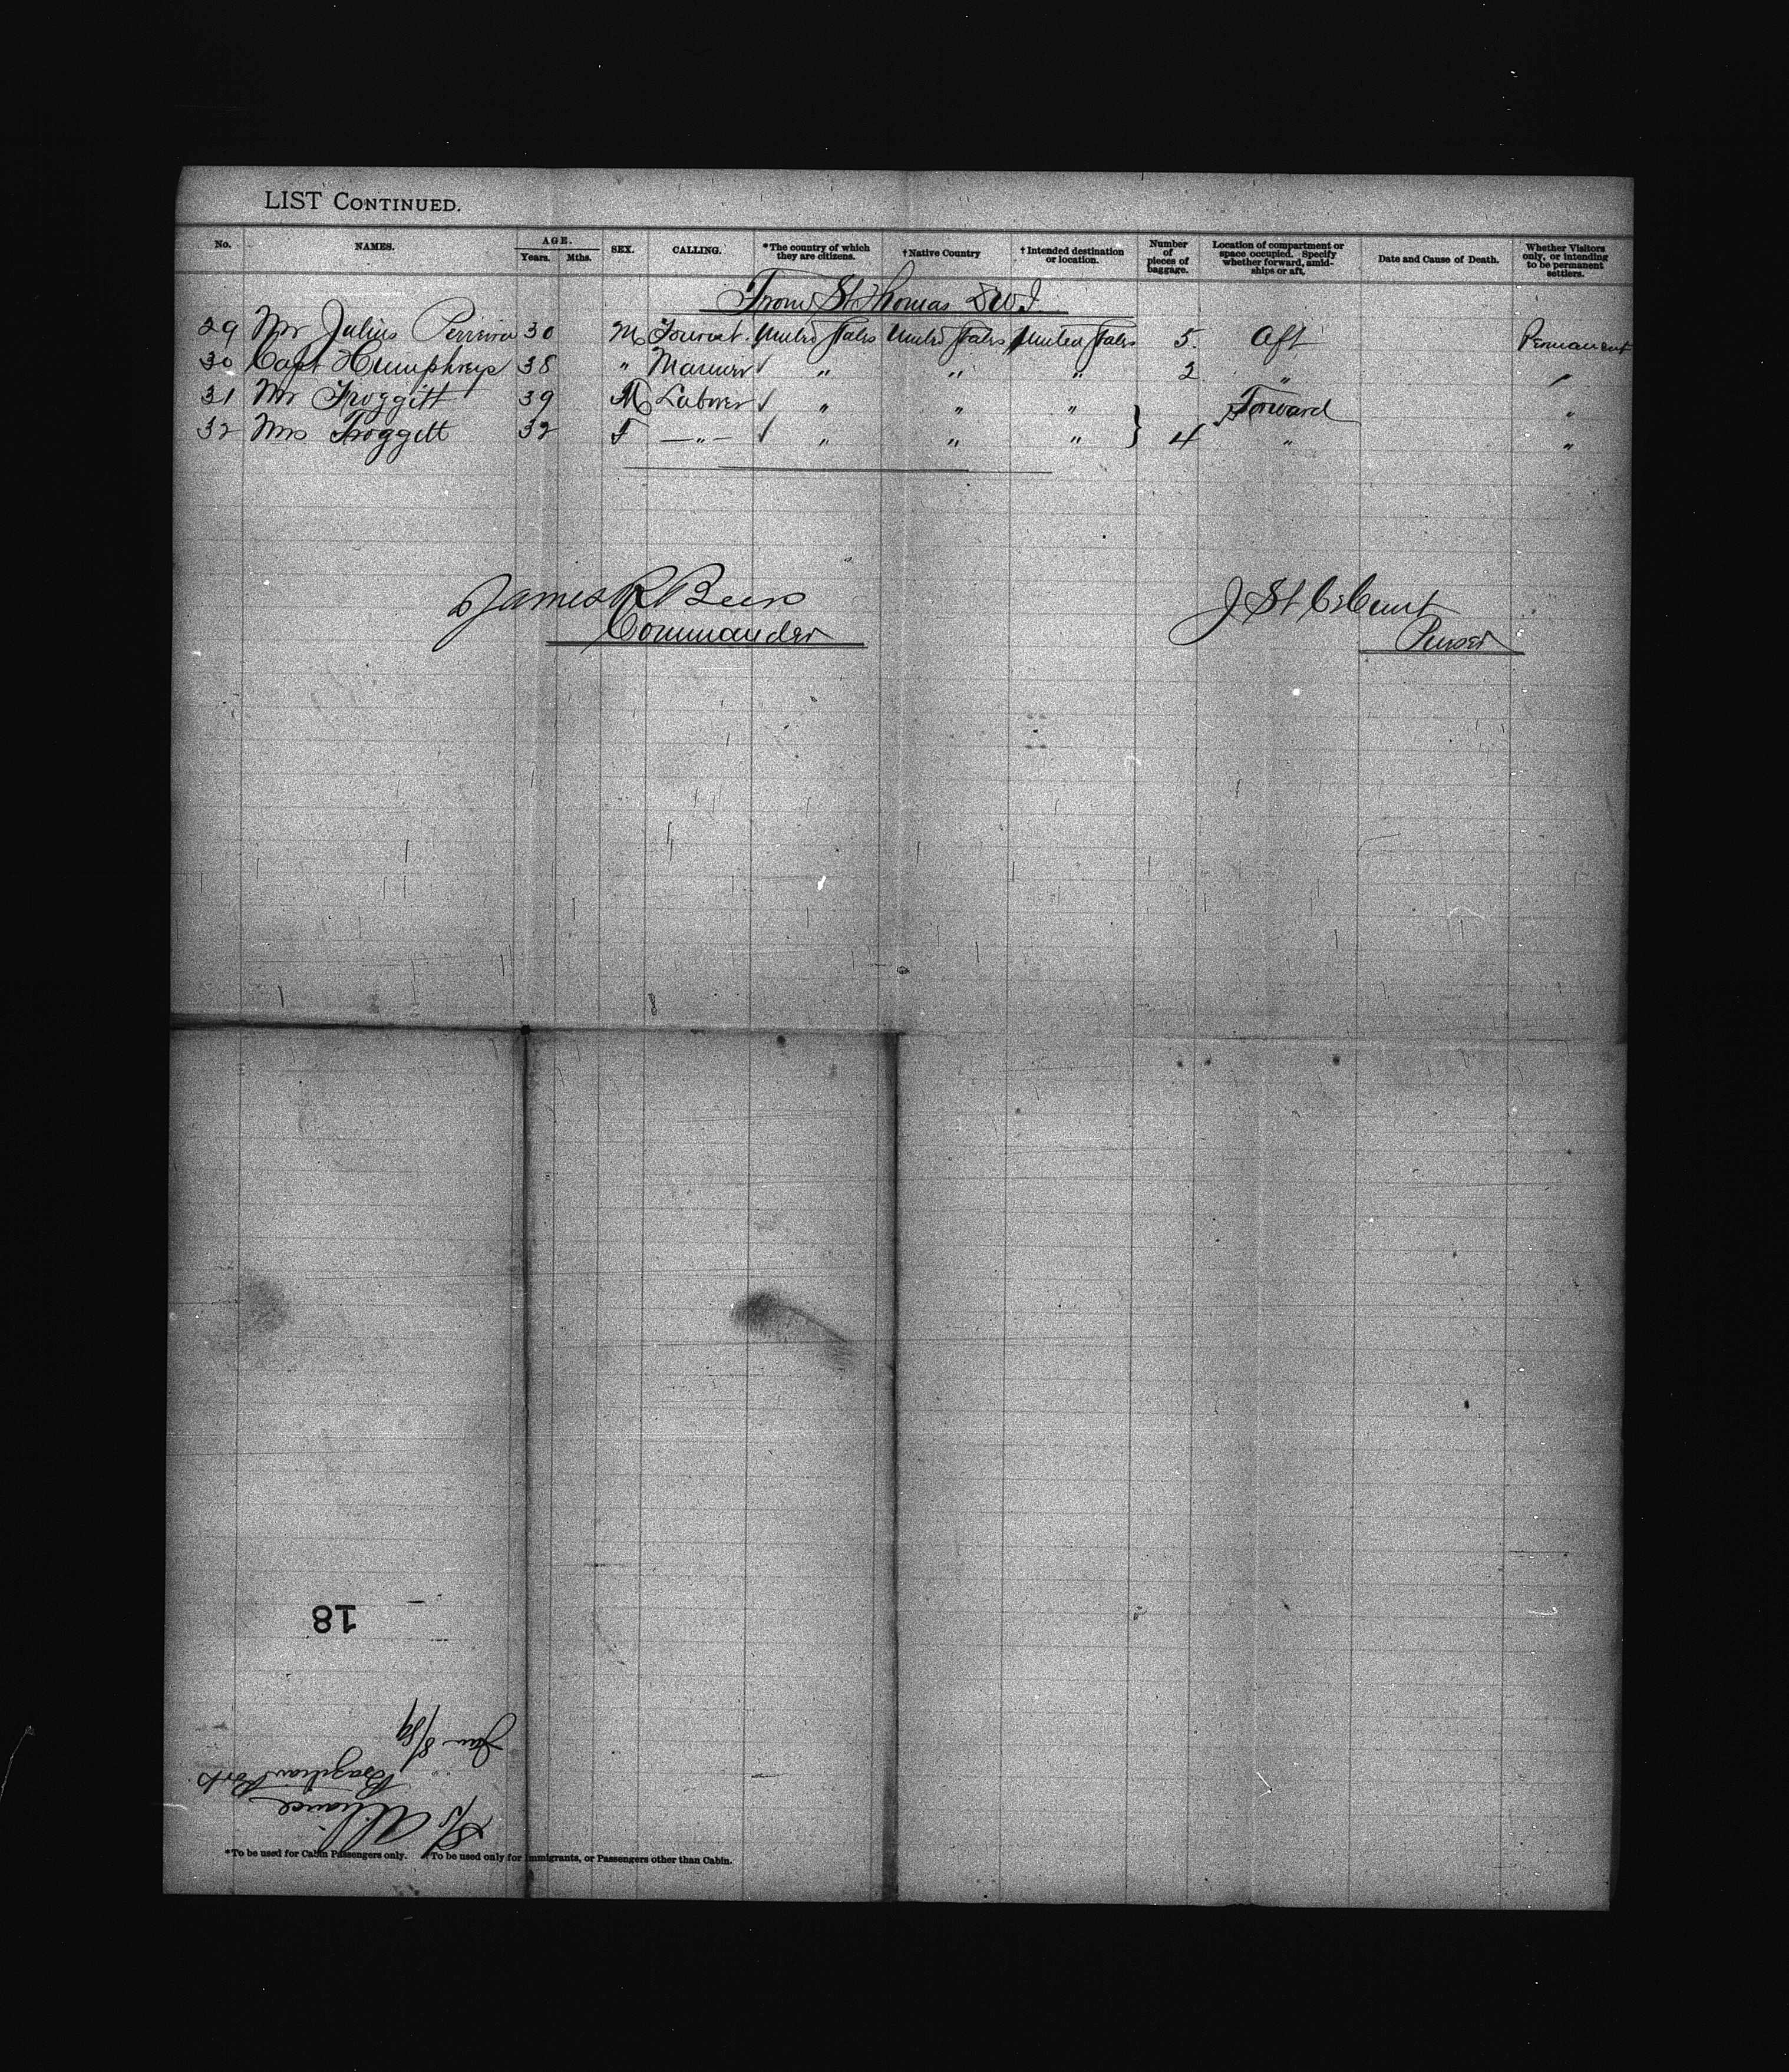 LIST CONTINUED.
No. NAMES. AGE. Years. Mths. SEX. CALLING. *The country of which they are citizens. †Native Country †Intended destination or location. Number of pieces of baggage. Location of compartment or space occupied. Specify whether forward, amidships or aft. Date and Cause of Death. Whether Visitors only, or intending to be permanent settlers.
From St Thomas DWI
29 Mr Julius 30 M Tourist. United States United States United States 5. Aft Permanent
30 Capt Humphreys 38 " Mariner ✓ " " " 2 " "
31 Mr Froggitt 39 M Laborer ✓ " " " } Forward "
32 Mrs Froggett 32 F —"— ✓ " " " 4 " "
James R Beers
Commander
J St
Purser
18
SS Alliance
Brazilian Ports
Jan 8/89
*To be used for Cabin Passengers only. †To be used only for Immigrants, or Passengers other than Cabin.